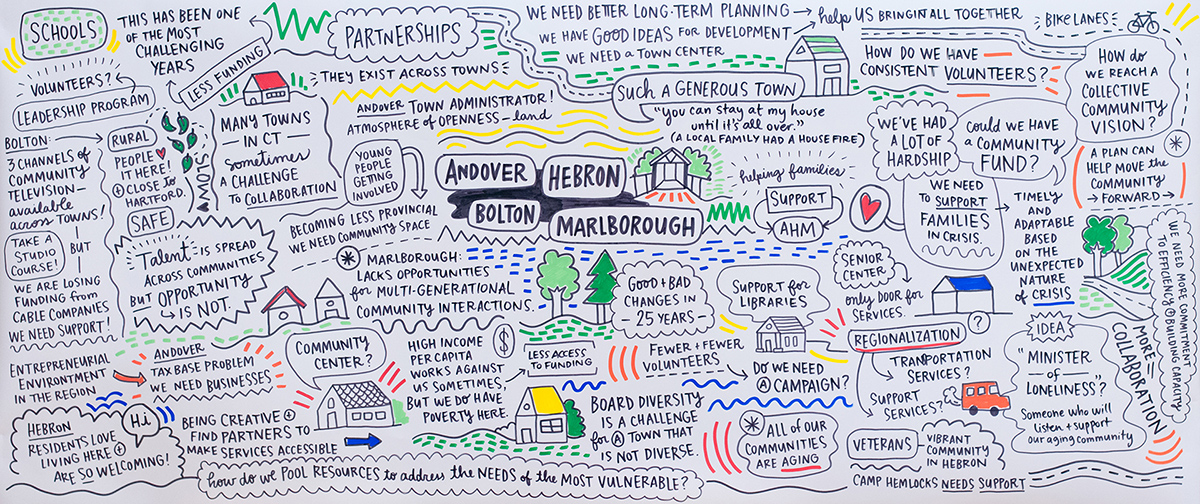 SCHOOLS
THIS HAS BEEN ONE
OF THE MOST
CHALLENGING
YEARS
LESS FUNDING
VOLUNTEERS?
LEADERSHIP PROGRAM
PARTNERSHIPS
THEY EXIST ACROSS TOWNS
ANDOVER TOWN ADMINISTRATOR!
ATMOSPHERE OF OPENNESS – land
WE NEED BETTER LONG-TERM PLANNING
help US BRING IN ALL TOGETHER
WE HAVE GOOD IDEAS FOR DEVELOPMENT
WE NEED A TOWN CENTER
BIKE LANES
SUCH A GENEROUS TOWN
"YOU CAN STAY AT MY HOUSE
UNTIL IT'S ALL OVER."
(A LOCAL FAMILY HAD A HOUSE FIRE)
HOW DO WE HAVE
CONSISTENT VOLUNTEERS?
HOW do
WE REACH A
COLLECTIVE
COMMUNITY
VISION?
A PLAN CAN
HELP MOVE THE
COMMUNITY
FORWARD
BOLTON:
3 CHANNELS OF
COMMUNITY
TELEVISION –
available
across TOWNS!
TAKE A
STUDIO
COURSE!
BUT
WE ARE LOSING
FUNDING from
CABLE COMPANIES
WE NEED SUPPORT!
RURAL
PEOPLE
IT HERE!
+ CLOSE to
HARTFORD.
SAFE
SLOW
MANY TOWNS
IN CT –
sometimes
A CHALLENGE
to COLLABORATION
YOUNG
PEOPLE
GETTING
INVOLVED
BECOMING LESS PROVINCIAL
WE NEED COMMUNITY SPACE
ANDOVER
HEBRON
BOLTON
MARLBOROUGH
helping families
SUPPORT
AHM
WE'VE HAD
A LOT OF
HARDSHIP
COULD WE HAVE
a COMMUNITY
FUND?
WE NEED
to SUPPORT
FAMILIES
IN CRISIS.
TIMELY
AND
ADAPTABLE
BASED
ON THE
UNEXPECTED
NATURE
of CRISIS
WE NEED MORE COMMITMENT
TO EFFICIENCY + BUILDING CAPACITY
MORE
COLLABORATION
Talent IS SPREAD
ACROSS COMMUNITIES
BUT OPPORTUNITY
IS NOT.
MARLBOROUGH:
LACKS OPPORTUNITIES
for MULTI-GENERATIONAL
COMMUNITY INTERACTIONS.
GOOD + BAD
CHANGES IN
25 YEARS
SUPPORT for
LIBRARIES
SENIOR
CENTER
only DOOR for
SERVICES.
REGIONALIZATION
?
TRANSPORTATION
SERVICES?
SUPPORT
SERVICES?
IDEA
"MINISTER
of
LONELINESS"?
Someone who will
listen + support
our aging community
ENTREPRENEURIAL
ENVIRONTMENT
IN THE REGION
ANDOVER
TAX BASE PROBLEM
WE NEED BUSINESSES
COMMUNITY
CENTER?
HIGH INCOME
PER CAPITA
WORKS AGAINST
US SOMETIMES,
BUT WE DO HAVE
POVERTY HERE.
$
LESS ACCESS
TO FUNDING
FEWER + FEWER
VOLUNTEERS
DO WE NEED
A CAMPAIGN?
HEBRON
RESIDENTS LOVE
LIVING HERE +
ARE SO WELCOMING!
Hi
BEING CREATIVE +
FIND PARTNERS TO
MAKE SERVICES ACCESSIBLE
BOARD DIVERSITY
IS A CHALLENGE
for A TOWN THAT
IS NOT DIVERSE.
ALL OF OUR
COMMUNITIES
ARE AGING
VETERANS
VIBRANT
COMMUNITY
IN HEBRON
CAMP HEMLOCKS NEEDS SUPPORT
how do we POOL RESOURCES to address the NEEDS of the MOST VULNERABLE?